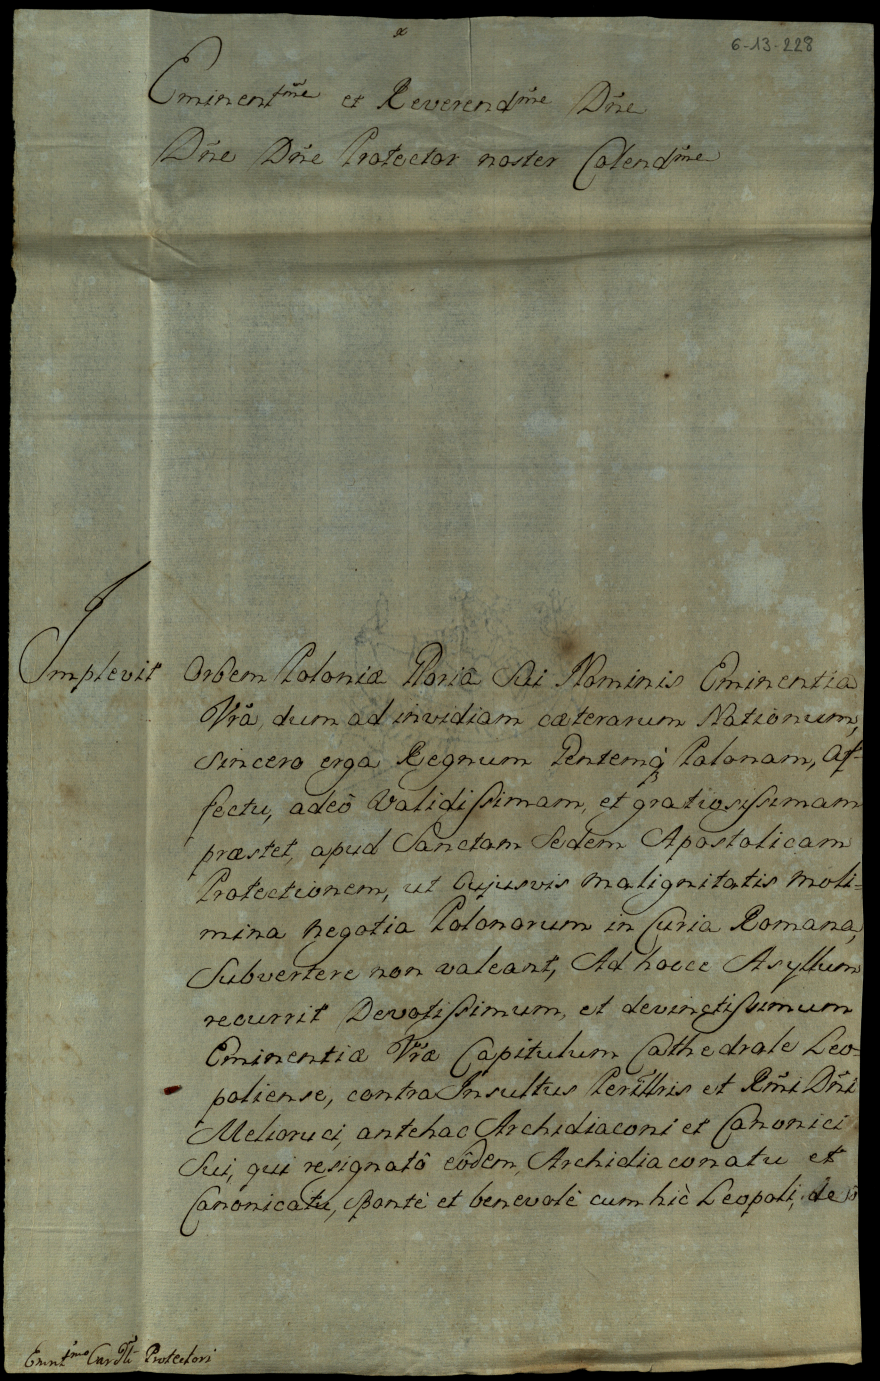 6-13-228
Eminent^mẽ et Reverend^mẽ Dñe
Dñe Dñe Protector noster Colend^mẽ
Implevit Orbem Poloniæ Gloriâ Sui Nominis Eminentia
Vrã, dum ad invidiam cæterarum Nationum,
sincero erga Regnum Gentemq̃ Polonam, Af-
fectu, adeò Validissimam, et gratiosissimam
præstet, apud Sanctam Sedem Apostolicam
Protectionem, ut Cujusvis malignitatis moli=
mina negotia Polonorum in Curia Romana,
Subvertere non valeant, Ad hocce Asyllum
recurrit Devotissimum, et devinctissimum
Eminentiæ Vræ̃ Capitulum Cathedrale Leo=
poliense, contra Insultus Perillris et Rm̃i Dñi
Melioruci, antehac Archidiaconi et Canonici
Sui, qui resignatô eôdem, Archidiaconatu et
Canonicatu, Spontè et benevolè cum hìc Leopoli, de
Emnt^imo Cardłi Protectori